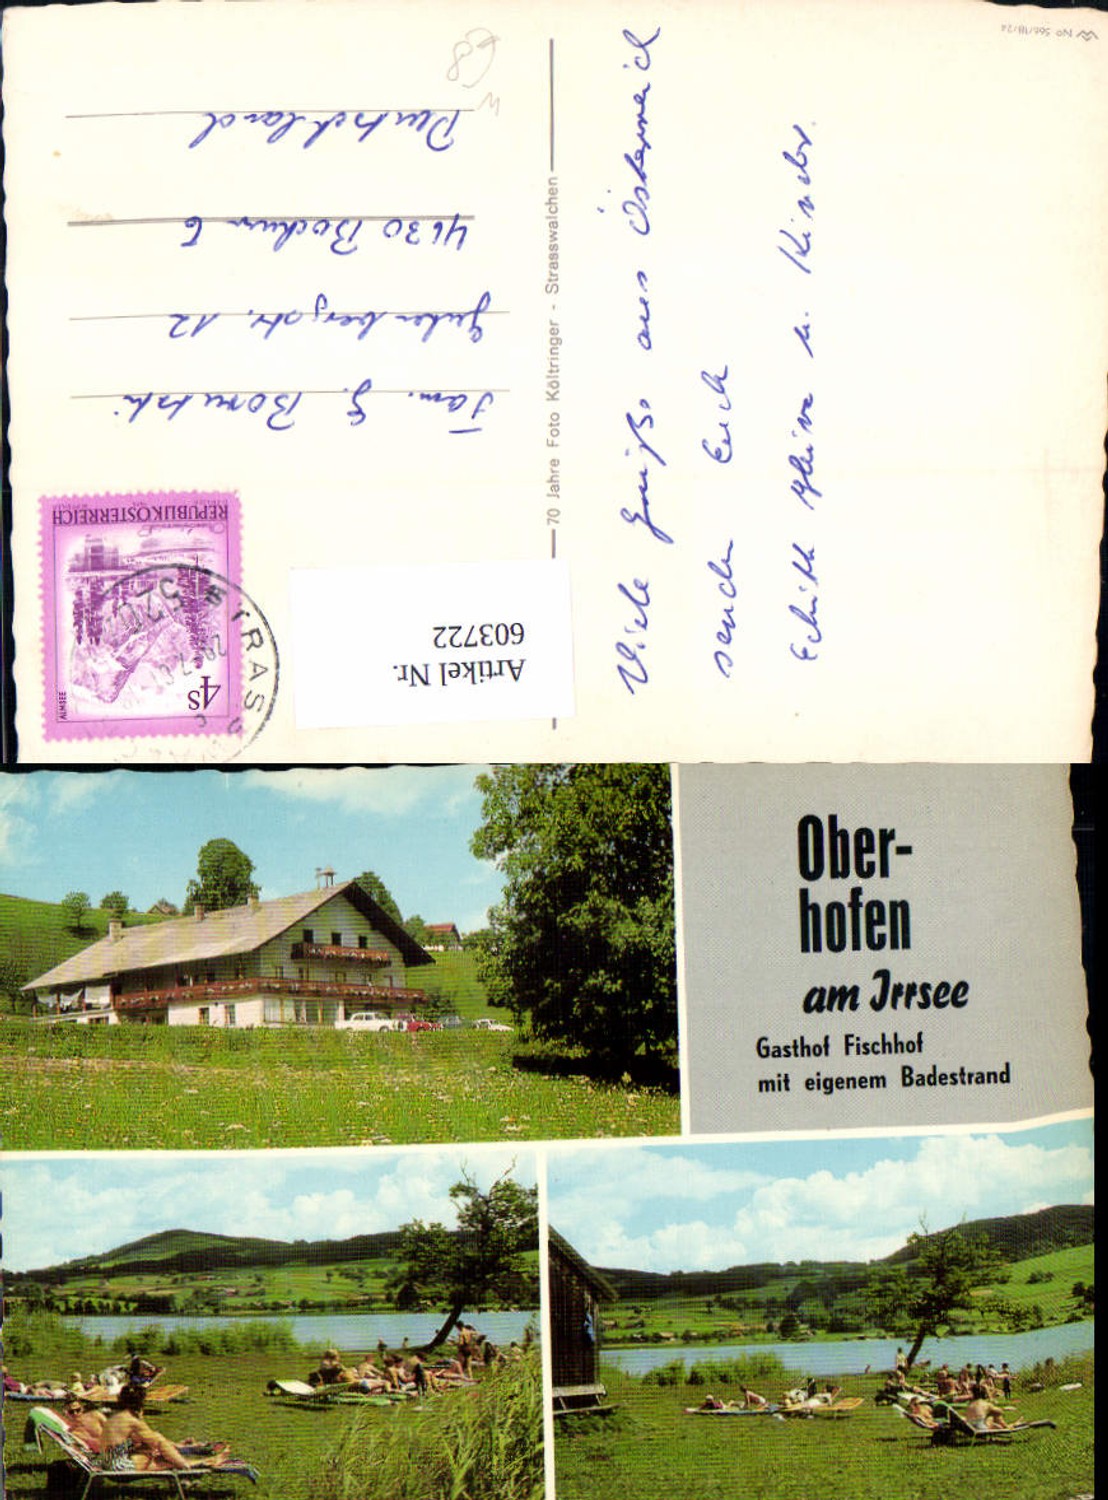 W No 566/18/24
Viele Grüße aus Österreich
senden Euch
u. Kinder.
70 Jahre Foto Költringer - Strasswalchen
Fam. G.
Gutenbergstr. 12
4630 Bochum 6
Deutschland
REPUBLIK ÖSTERREICH
ALMSEE
4S
STRASS
Artikel Nr.
603722
Ober-
hofen
am Irrsee
Gasthof Fischhof
mit eigenem Badestrand